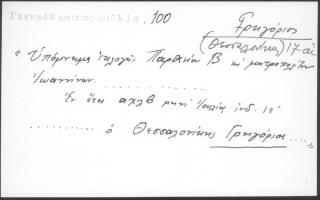 Γενναδ
.100
Γρηγόριος
(Θεσσαλονίκης) 17 αἰ
« Ὑπόμνημα ἐκλογῆς Παρθενίου Β μητροπολίτου
Ἰωαννίνων. . . . . . . . . . . . . . .
Ἐν ἔτει αχλβ μηνὶ Ἰουλίῳ ἰνδ. ιε΄
. . . . . . . . . . ὁ Θεσσαλονίκης Γρηγόριος . . . . »